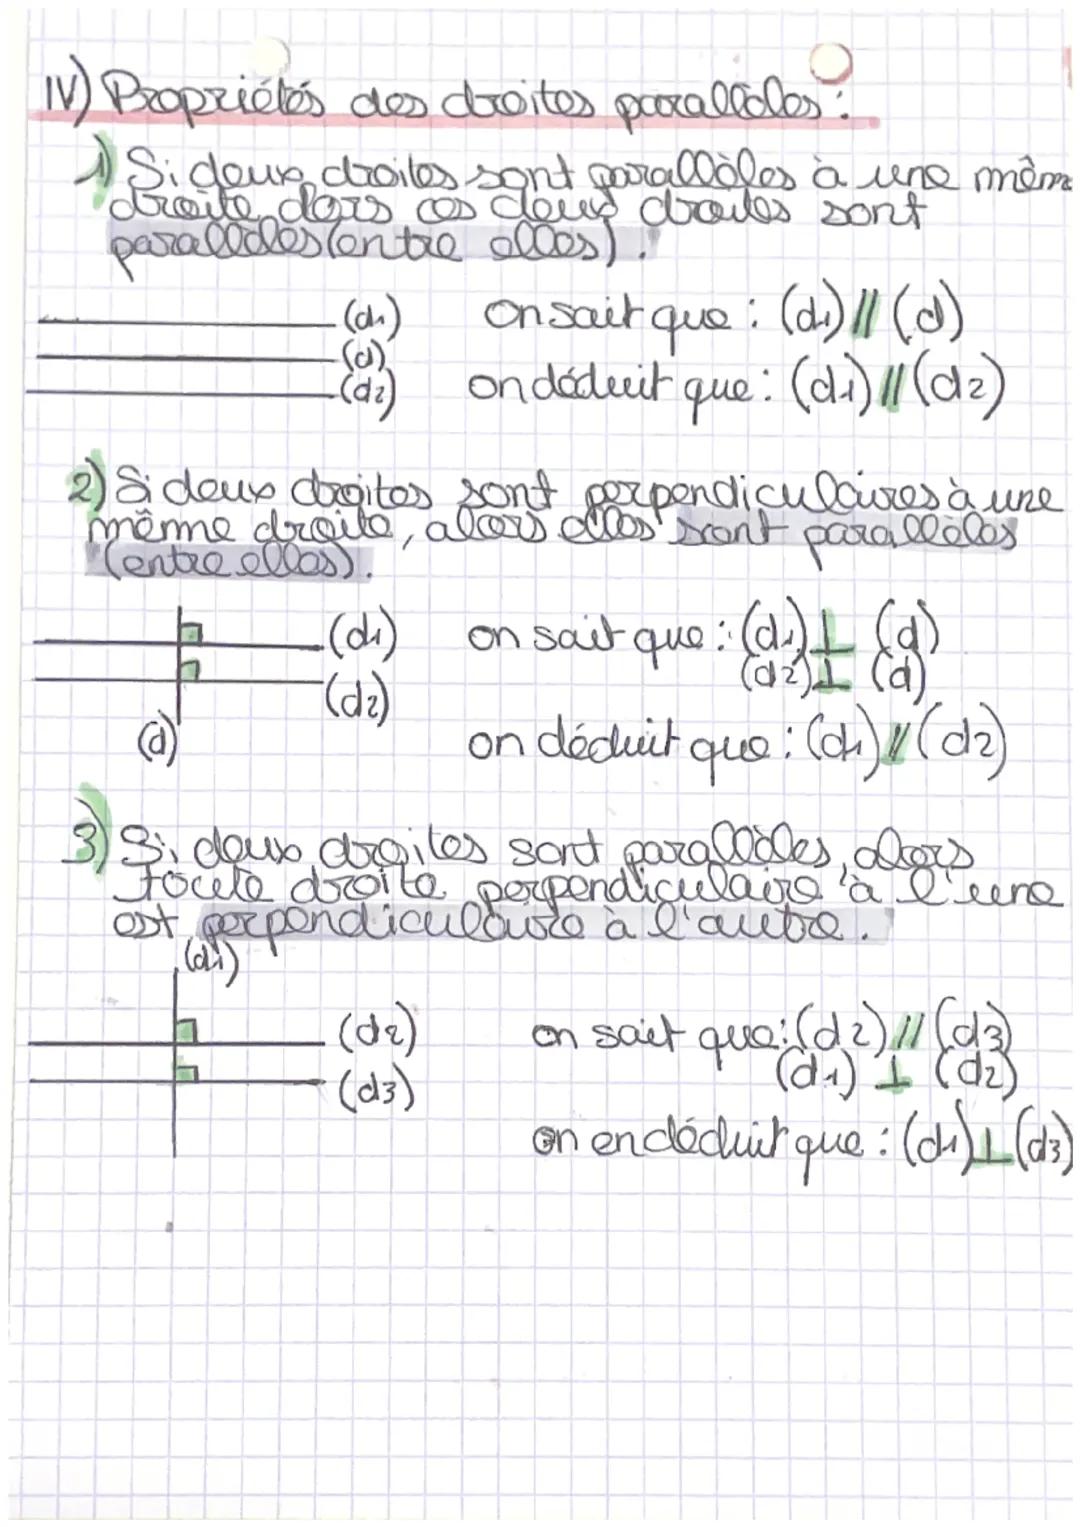 IV) Propriétés des droites parallèles :
1) Si deux droites sont parallèles à une même
droite alors ces deux droites sont
parallèles (entre elles).
(d1) on sait que : (d1) // (d)
(d)
(d2) on déduit que : (d1) // (d2)
2) Si deux droites sont perpendiculaires à une
même droite, alors elles sont parallèles
(entre elles).
(d1) on sait que : (d1) ⊥ (d)
(d2) ⊥ (d)
(d2)
(d) on déduit que : (d1) // (d2)
3) Si deux droites sont parallèles, alors
toute droite perpendiculaire à l'une
est perpendiculaire à l'autre.
(d1)
(d2) on sait que : (d2) // (d3)
(d1) ⊥ (d2)
(d3)
on en déduit que : (d1) ⊥ (d3)